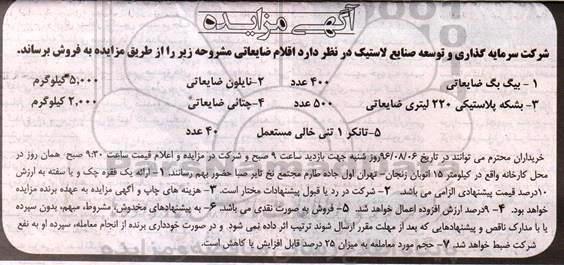 آگهی مزایده
شرکت سرمایه گذاری و توسعه صنایع لاستیک در نظر دارد اقلام ضایعاتی مشروحه زیر را از طریق مزایده به فروش برساند.
۱- بیگ بگ ضایعاتی ۴۰۰ عدد ۲-نایلون ضایعاتی ۵,۰۰۰ کیلوگرم
۳- بشکه پلاستیکی ۲۲۰ لیتری ضایعاتی ۵۰۰ عدد ۴-چتائی ضایعاتی ۲,۰۰۰ کیلوگرم
۵-تانکر ۱ تنی خالی مستعمل ۴۰ عدد
خریداران محترم می توانند در تاریخ ۹۶/۰۸/۰۶روز شنبه جهت بازدید ساعت ۹ صبح و شرکت در مزایده و اعلام قیمت ساعت ۹:۳۰ صبح- همان روز در
محل کارخانه واقع در کیلومتر ۱۵ اتوبان زنجان- تهران اول جاده طارم مجتمع نخ تایر صبا حضور بهم رسانند. ۱-ارائه یک فقره چک و یا سفته به ارزش
۱۰درصد قیمت پیشنهادی الزامی می باشد. ۲- شرکت در رد یا قبول پیشنهادات مختار است. ۳- هزینه های چاپ و آگهی مزایده به عهده برنده مزایده
خواهد بود. ۴- ۹درصد ارزش افزوده اعمال خواهد شد. ۵- فروش به صورت نقدی می باشد. ۶- به پیشنهادهای مخدوش، مشروط، مبهم، بدون سپرده
یا با مدارک ناقص و پیشنهادهایی که بعد از مهلت مقرر ارسال شوند ترتیب اثر داده نمی شود. و در صورت خودداری برنده از انجام معامله، سپرده او به نفع
شرکت ضبط خواهد شد. ۷- حجم مورد معامله به میزان ۲۵ درصد قابل افزایش یا کاهش است.